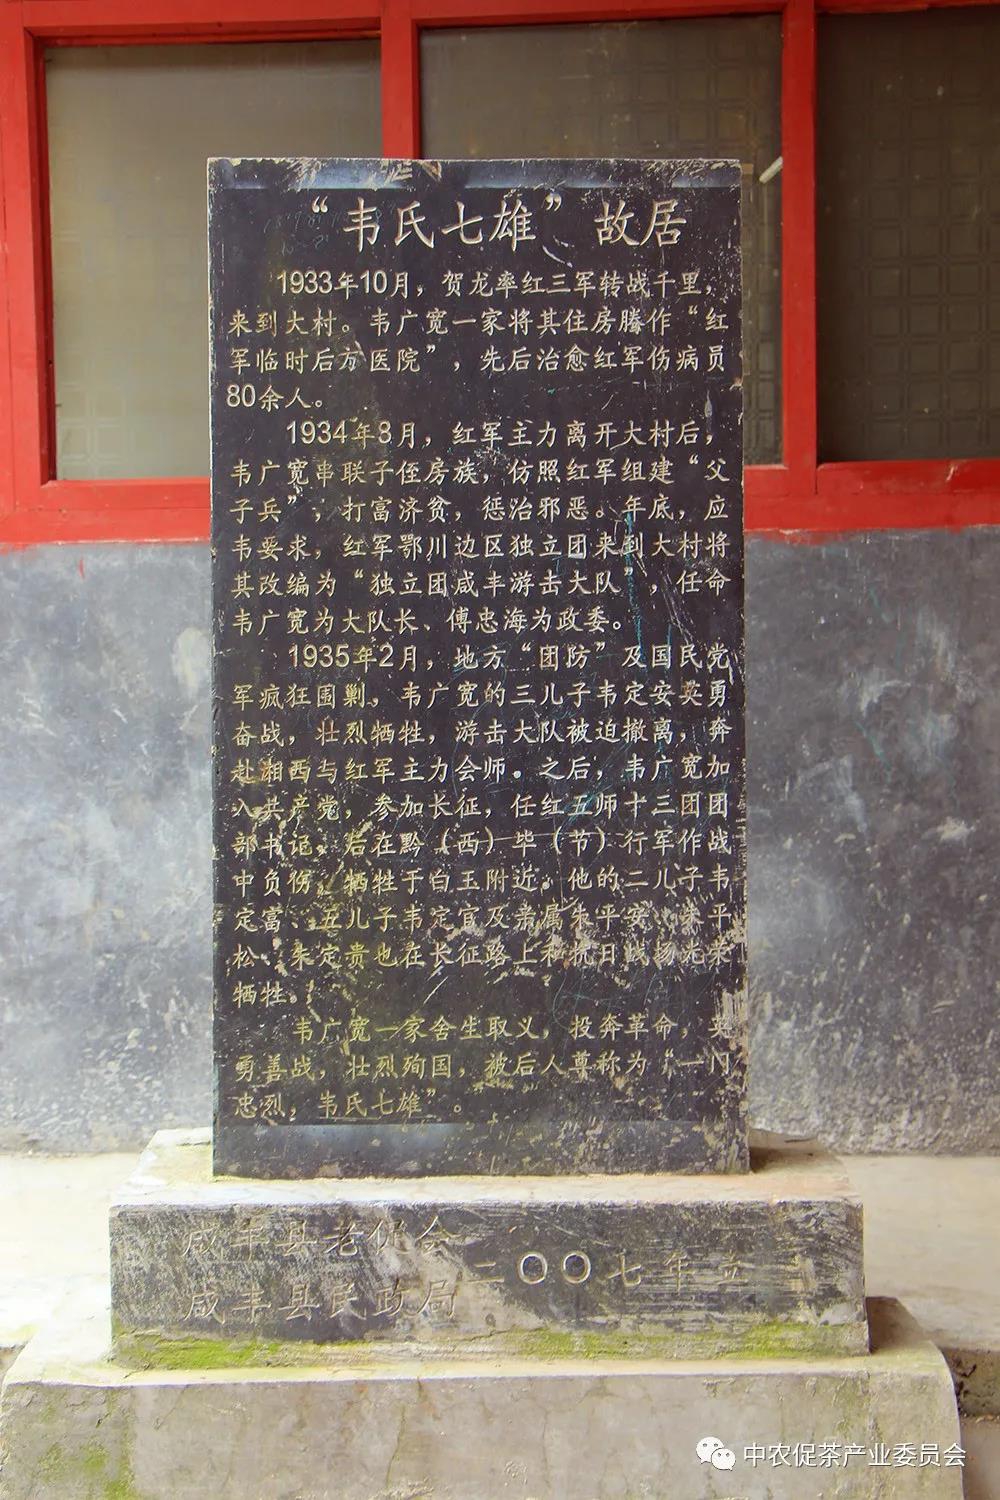 “韦氏七雄” 故居
1933年10月，贺龙率红三军转战千里，
来到大村。韦广宽一家将其住房腾作“红
军临时后方医院”，先后治愈红军伤病员
80余人。
1934年8月，红军主力离开大村后，
韦广宽串联子侄房族，仿照红军组建“父
子兵”，打富济贫，惩治邪恶。年底，应
韦要求，红军鄂川边区独立团来到大村将
其改编为“独立团咸丰游击大队”，任命
韦广宽为大队长、傅忠海为政委。
1935年2月，地方“团防”及国民党
军疯狂围剿，韦广宽的三儿子韦定安英勇
奋战，壮烈牺牲，游击大队被迫撤离，奔
赴湘西与红军主力会师。之后，韦广宽加
入共产党，参加长征，任红五师十三团团
部书记，后在黔（西）毕（节）行军作战
中负伤，牺牲于白玉附近。他的二儿子韦
定富、五儿子韦定宜及亲属朱平安、朱平
松、朱定贵也在长征路上和抗日战场光荣
牺牲。
韦广宽一家舍生取义，投奔革命，英
勇善战，壮烈殉国，被后人尊称为“一门
忠烈，韦氏七雄”。
咸丰县老促会
咸丰县民政局
二〇〇七年立
中农促茶产业委员会